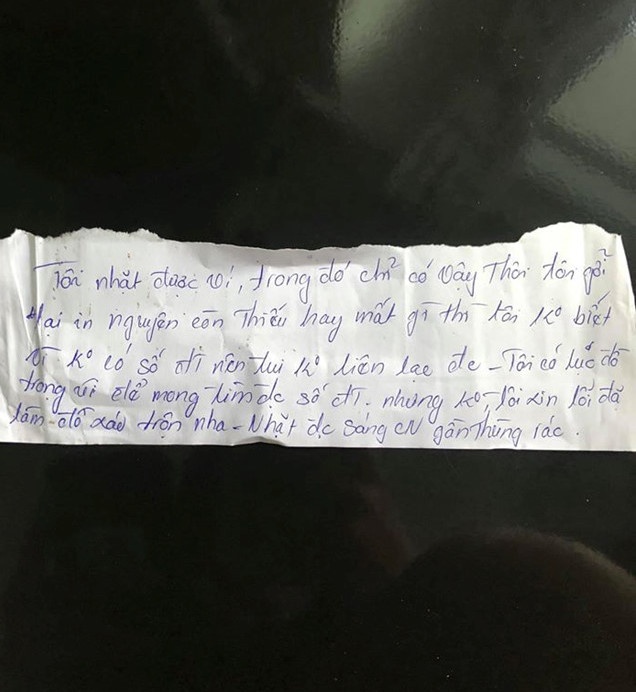 Tôi nhặt được ví, trong đó chỉ có vậy Thôi tôi gởi
lại in nguyên còn Thiếu hay mất gì thì tôi ko biết
vì ko có số đt nên tui ko liên lạc đc - Tôi có lục đồ
trong ví để mong tìm đc số đt. nhưng ko, tôi xin lỗi đã
làm đồ xáo trộn nha - Nhặt đc sáng CN gần Thùng rác.